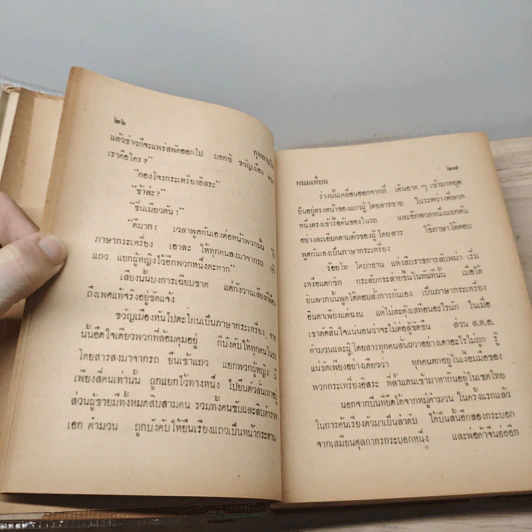 ๒๖
แล้วข่าวก็จะแพร่สพัดออกไป บอกซิ ขวัญเมือง
เราคือใคร?"
"กองโจรกระเหรี่ยงอิสระ"
"ข้าล่ะ?"
"ขึ้นเมียวคัน!"
"ดีมาก! เวลาพูดกันเองต่อหน้าพวกนั้น ใช้
ภาษากระเหรี่ยง เอาละ ให้ทุกคนลงมาจากรถ เข้า
แถว แยกผู้หญิงไว้อีกพวกหนึ่งต่างหาก"
เสียงนั้นบงการเฉียบขาด
ถึงเพศแท้จริงอยู่ชัดแจ้ง
ขวัญเมืองหันไปตะโกนเป็นภาษากระเหรี่ยง
นั้นอึดใจเดียวพวกที่ล้อมคุมอยู่ ก็บังคับให้ทุกคนใน
โดยสารลงมาจากรถ ยืนเข้าแถว แยกพวกผู้หญิง
เพียงสี่คนเท่านั้น ถูกแยกไว้ทางหนึ่ง ไปยืนตัวสั่น
ส่วนผู้ชายมีทั้งหมดสิบสามคน รวมทั้งคนขับและสิบตำรวจ
เอก คำมวน ถูกบังคับให้ยืนเรียงแถวเป็นหน้ากระดาน
พนมเทียน ๒๗
ร่างนั้นเคลื่อนออกจากที่ เดินอาด ๆ เข้ามาหยุด
ยืนอยู่ตรงหน้าของแถวผู้โดยสารชาย ในระหว่างที่พวก
หนึ่งตรงเข้าไขค้นของในรถ และอีกพวกหนึ่งแยกค้น
อย่างละเอียดตามตัวของผู้โดยสาร ใช้ภาษาโต้ตอบ
พูดกันเป็นภาษากระเหรี่ยง
ร้อยโท โดบาซาน แห่งสับราชการลับพม่า เริ่ม
เหงื่อแตกซิก กระสับกระส่ายขึ้นในทันทีนั้น เมื่อได้
ยินพวกนั้นพูดโต้ตอบสั่งการกันเอง เป็นภาษากระเหรี่ยง
อินตาเพียงแต่ฉงน แต่ไม่สะดุ้งเสทือนอะไรนัก ในเมื่อ
เขาตัดสินใจแน่นอนว่าจะไม่ต่อสู้ขัดขืน ส่วน ส.ต.อ.
คำมวนและผู้โดยสารทุกคนสั่นรวายอย่างเดาอะไรไม่ถูก รู้
แน่ชัดเพียงอย่างเดียวว่า ทุกคนตกอยู่ในเงื้อมมือของ
พวกกระเหรี่ยงอิสระ ที่ล้ำแดนเข้ามาหากินอยู่ในเขตไทย
นอกจากปืนที่ยึดได้จากหมู่คำมวน ในครั้งแรกแล้ว
ในการค้นเรียงตัวมาเป็นลำดับ ได้ปืนสั้นอีกสองกระบอก
จากเสมียนศุลกากรกระบอกหนึ่ง และพ่อค้าจีนย่อยอีก